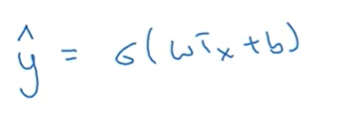 ŷ = σ(wᵀx + b)